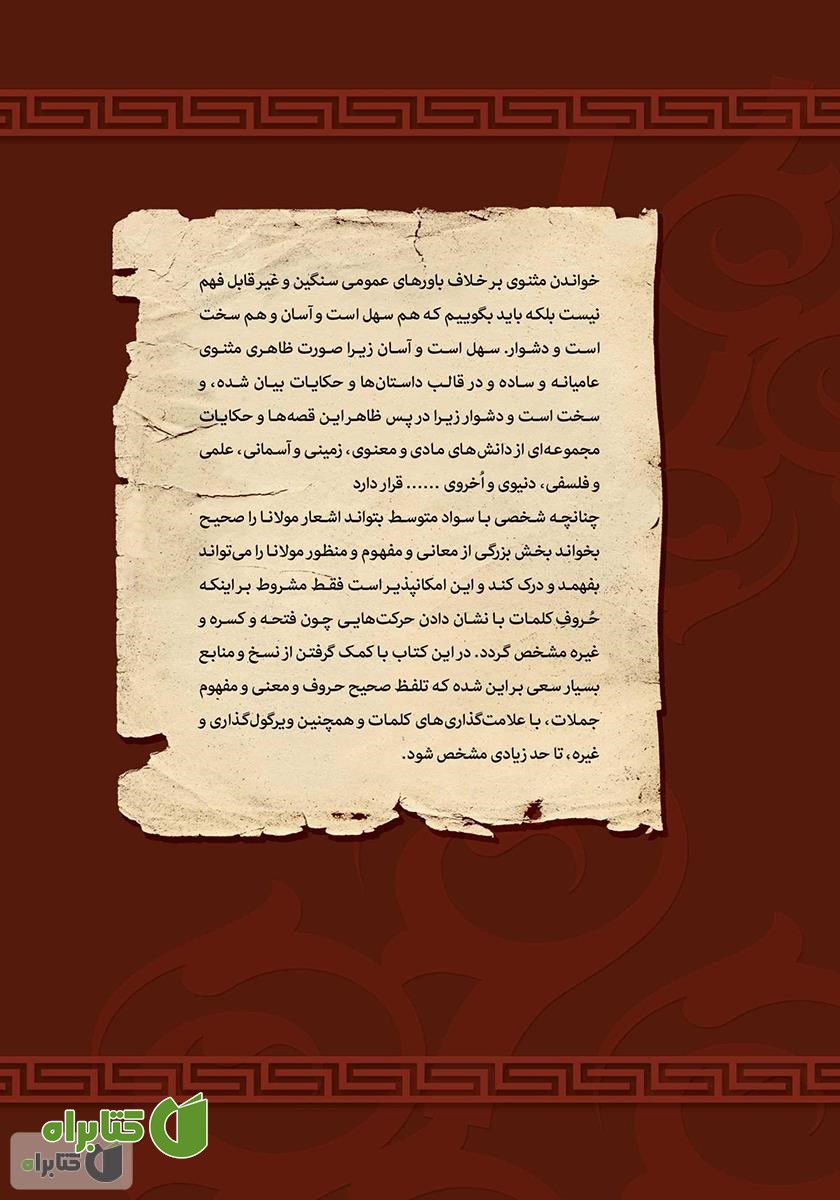 خواندن مثنوی بر خلاف باورهای عمومی سنگین و غیر قابل فهم
نیست بلکه باید بگوییم که هم سهل است و آسان و هم سخت
است و دشوار. سهل است و آسان زیرا صورت ظاهری مثنوی
عامیانه و ساده و در قالب داستان‌ها و حکایات بیان شده، و
سخت است و دشوار زیرا در پس ظاهر این قصه‌ها و حکایات
مجموعه‌ای از دانش‌های مادی و معنوی، زمینی و آسمانی، علمی
و فلسفی، دنیوی و اُخروی ...... قرار دارد
چنانچه شخصی با سواد متوسط بتواند اشعار مولانا را صحیح
بخواند بخش بزرگی از معانی و مفهوم و منظور مولانا را می‌تواند
بفهمد و درک کند و این امکانپذیر است فقط مشروط بر اینکه
حُروفِ کلمات با نشان دادن حرکت‌هایی چون فتحه و کسره و
غیره مشخص گردد. در این کتاب با کمک گرفتن از نسخ و منابع
بسیار سعی بر این شده که تلفظ صحیح حروف و معنی و مفهوم
جملات، با علامت‌گذاری‌های کلمات و همچنین ویرگول‌گذاری و
غیره، تا حد زیادی مشخص شود.
کتابراه
کتابراه